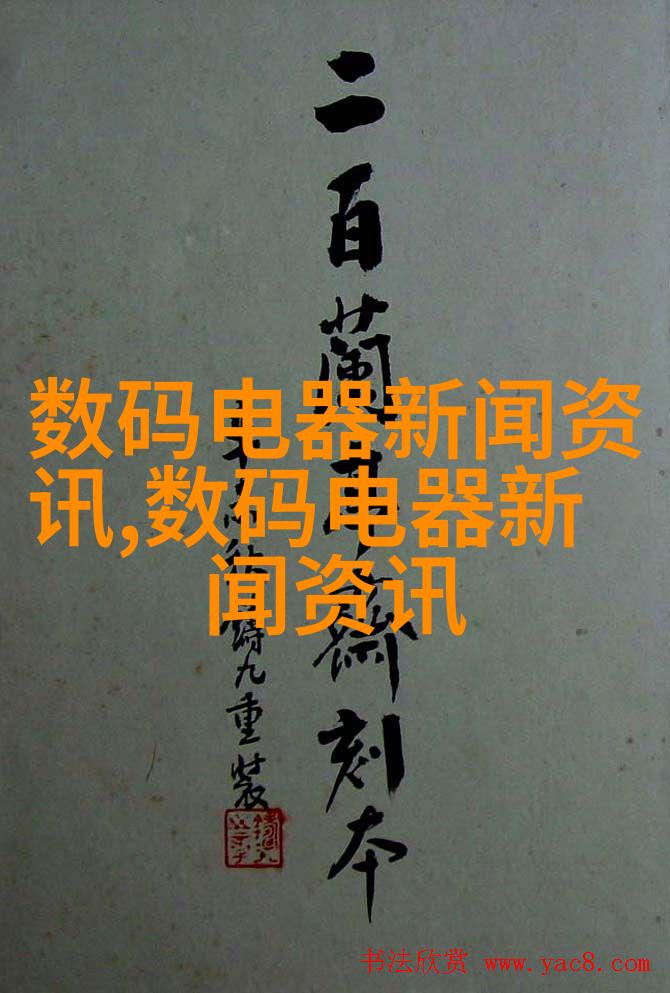 二百蘭亭齋刻本
九重裝
数码电器新闻资
讯,数码电器新
闻资讯
书法欣赏 www.yac8.com